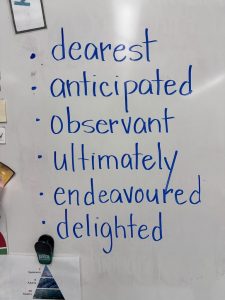 • dearest
• anticipated
• observant
• ultimately
• endeavoured
• delighted